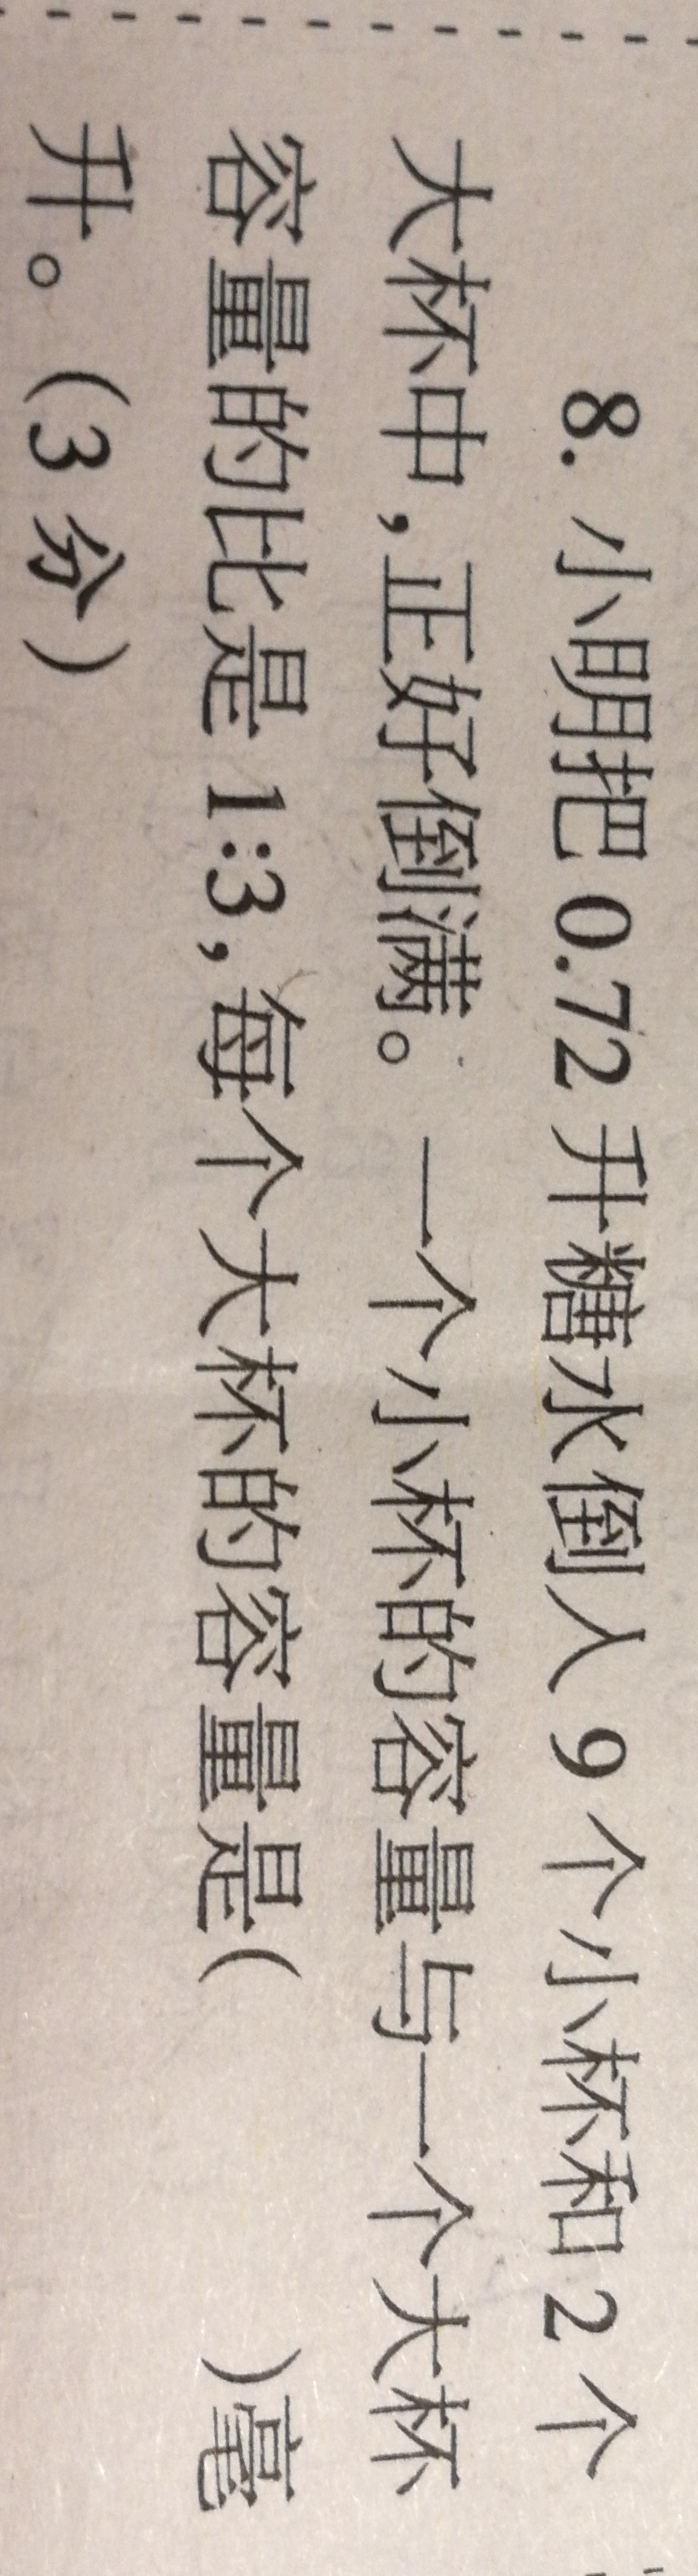 8. 小明把 0.72 升糖水倒人 9 个小杯和 2 个
大杯中,正好倒满。一个小杯的容量与一个大杯
容量的比是 1:3,每个大杯的容量是( )毫
升。(3 分)